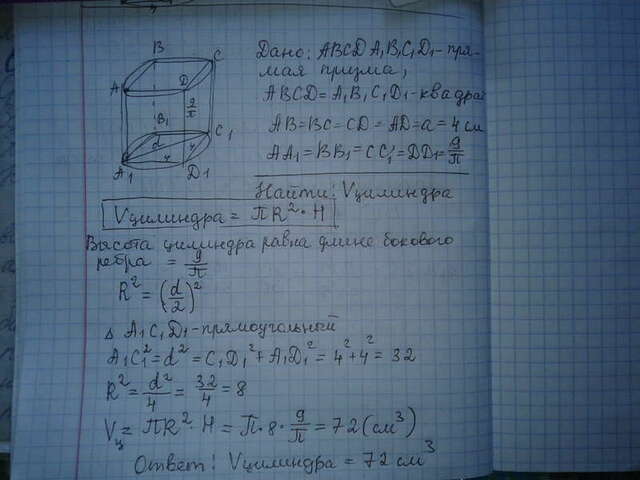 B
C
A
D
9/π
B₁
C₁
d
4
4
A₁
D₁
Дано: ABCD A₁B₁C₁D₁ - пря-
мая призма,
ABCD = A₁B₁C₁D₁ - квадрат
AB = BC = CD = AD = a = 4 см
AA₁ = BB₁ = CC₁ = DD₁ = 9/π
Найти: Vцилиндра
Vцилиндра = πR²·H
Высота цилиндра равна длине бокового
ребра = 9/π
R² = (d/2)²
Δ A₁C₁D₁ - прямоугольный
A₁C₁² = d² = C₁D₁² + A₁D₁² = 4² + 4² = 32
R² = d²/4 = 32/4 = 8
Vц = πR²·H = π·8·9/π = 72 (см³)
Ответ: Vцилиндра = 72 см³